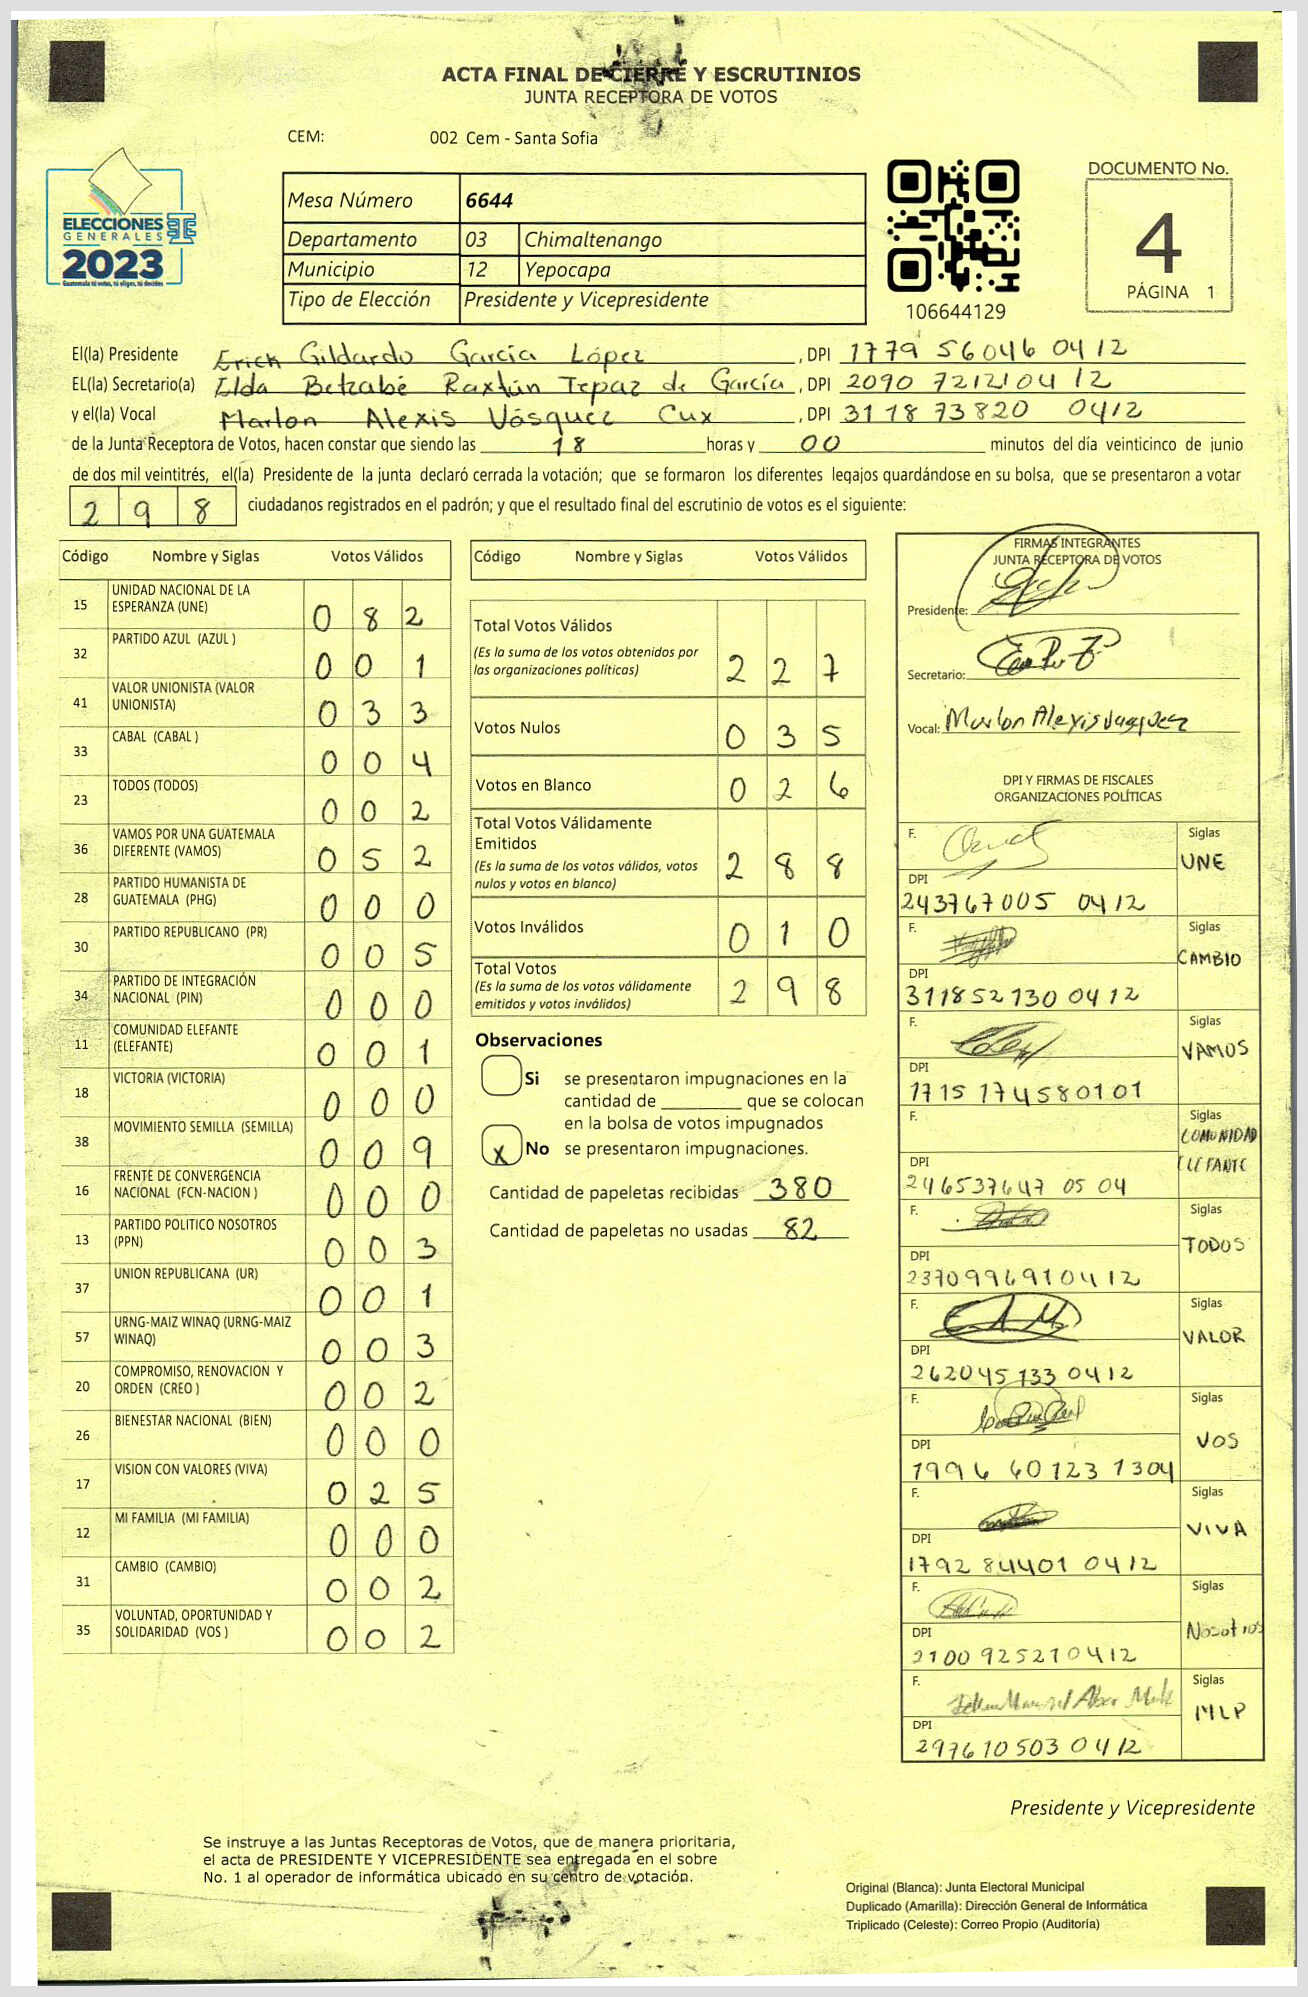 ACTA FINAL DE CIERRE Y ESCRUTINIOS
JUNTA RECEPTORA DE VOTOS
CEM: 002 Cem - Santa Sofia
ELECCIONES
GENERALES
2023
Guatemala tú votas, tú eliges, tú decides
Mesa Número 6644
Departamento 03 Chimaltenango
Municipio 12 Yepocapa
Tipo de Elección Presidente y Vicepresidente
106644129
DOCUMENTO No.
4
PÁGINA 1
El(la) Presidente Erick Gildardo García López , DPI 1779 56046 0412
EL(la) Secretario(a) Elda Betzabé Raxtún Tepaz de García , DPI 2090 72121 0412
y el(la) Vocal Marlon Alexis Vásquez Cux , DPI 3118 73820 0412
de la Junta Receptora de Votos, hacen constar que siendo las 18 horas y 00 minutos del día veinticinco de junio
de dos mil veintitrés, el(la) Presidente de la junta declaró cerrada la votación; que se formaron los diferentes legajos guardándose en su bolsa, que se presentaron a votar
298 ciudadanos registrados en el padrón; y que el resultado final del escrutinio de votos es el siguiente:
Código Nombre y Siglas Votos Válidos
15 UNIDAD NACIONAL DE LA ESPERANZA (UNE) 082
32 PARTIDO AZUL (AZUL ) 001
41 VALOR UNIONISTA (VALOR UNIONISTA) 033
33 CABAL (CABAL ) 004
23 TODOS (TODOS) 002
36 VAMOS POR UNA GUATEMALA DIFERENTE (VAMOS) 052
28 PARTIDO HUMANISTA DE GUATEMALA (PHG) 000
30 PARTIDO REPUBLICANO (PR) 005
34 PARTIDO DE INTEGRACIÓN NACIONAL (PIN) 000
11 COMUNIDAD ELEFANTE (ELEFANTE) 001
18 VICTORIA (VICTORIA) 000
38 MOVIMIENTO SEMILLA (SEMILLA) 009
16 FRENTE DE CONVERGENCIA NACIONAL (FCN-NACION ) 000
13 PARTIDO POLITICO NOSOTROS (PPN) 003
37 UNION REPUBLICANA (UR) 001
57 URNG-MAIZ WINAQ (URNG-MAIZ WINAQ) 003
20 COMPROMISO, RENOVACION Y ORDEN (CREO ) 002
26 BIENESTAR NACIONAL (BIEN) 000
17 VISION CON VALORES (VIVA) 025
12 MI FAMILIA (MI FAMILIA) 000
31 CAMBIO (CAMBIO) 002
35 VOLUNTAD, OPORTUNIDAD Y SOLIDARIDAD (VOS ) 002
Código Nombre y Siglas Votos Válidos
Total Votos Válidos
(Es la suma de los votos obtenidos por
las organizaciones políticas) 227
Votos Nulos 035
Votos en Blanco 026
Total Votos Válidamente
Emitidos
(Es la suma de los votos válidos, votos
nulos y votos en blanco) 288
Votos Inválidos 010
Total Votos
(Es la suma de los votos válidamente
emitidos y votos inválidos) 298
Observaciones
Si se presentaron impugnaciones en la
cantidad de ________ que se colocan
en la bolsa de votos impugnados
x No se presentaron impugnaciones.
Cantidad de papeletas recibidas 380
Cantidad de papeletas no usadas 82
FIRMAS INTEGRANTES
JUNTA RECEPTORA DE VOTOS
Presidente:
Secretario:
Vocal: Marlon Alexis Vasquez
DPI Y FIRMAS DE FISCALES
ORGANIZACIONES POLÍTICAS
F. Siglas UNE
DPI 243767005 0412
F. Siglas CAMBIO
DPI 311852130 0412
F. Siglas VAMOS
DPI 1715 17458 0101
F. Siglas COMUNIDAD ELEFANTE
DPI 246537647 05 04
F. Siglas TODOS
DPI 237099691 0412
F. Siglas VALOR
DPI 262045133 0412
F. Siglas VOS
DPI 1996 60123 1304
F. Siglas VIVA
DPI 1792 84401 0412
F. Siglas Nosotros
DPI 2100 92521 0412
F. Siglas MLP
DPI 297610503 0412
Presidente y Vicepresidente
Se instruye a las Juntas Receptoras de Votos, que de manera prioritaria,
el acta de PRESIDENTE Y VICEPRESIDENTE sea entregada en el sobre
No. 1 al operador de informática ubicado en su centro de votación.
Original (Blanca): Junta Electoral Municipal
Duplicado (Amarilla): Dirección General de Informática
Triplicado (Celeste): Correo Propio (Auditoría)